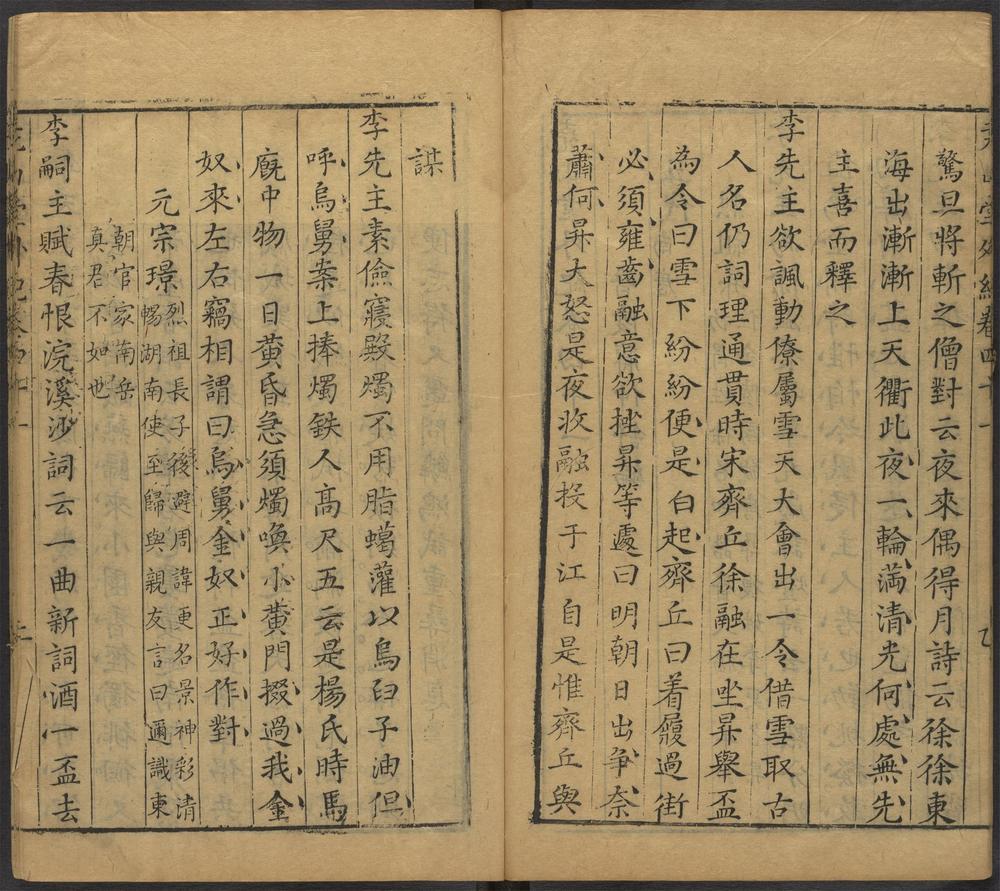 驚旦將斬之僧對云夜來偶得月詩云徐徐東
海出漸漸上天衢此夜一輪滿清光何處無先
主喜而釋之
李先主欲諷動僚屬雪天大會出一令借雪取古
人名仍詞理通貫時宋齊丘徐融在坐昇舉盃
為令曰雪下紛紛便是白起齊丘曰着履過街
必須雍齒融意欲挫昇等遽曰明朝日出爭奈
蕭何昇大怒是夜收融投于江自是惟齊丘與
謀
李先主素儉寢殿燭不用脂蠟灌以烏臼子油但
呼烏舅案上捧燭鉄人高尺五云是楊氏時馬
廐中物一日黃昏急須燭喚小黃門掇過我金
奴來左右竊相謂曰烏舅金奴正好作對
元宗璟烈祖長子後避周諱更名景神彩清
暢湖南使至歸與親友言曰邇識東
朝官家南岳
真君不如也
李嗣主賦春恨浣溪沙詞云一曲新詞酒一盃去